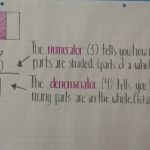 The numerator (3) tells you how
parts are shaded. (parts of a whol
3
The denominator (4) tells you
many parts are in the whole.